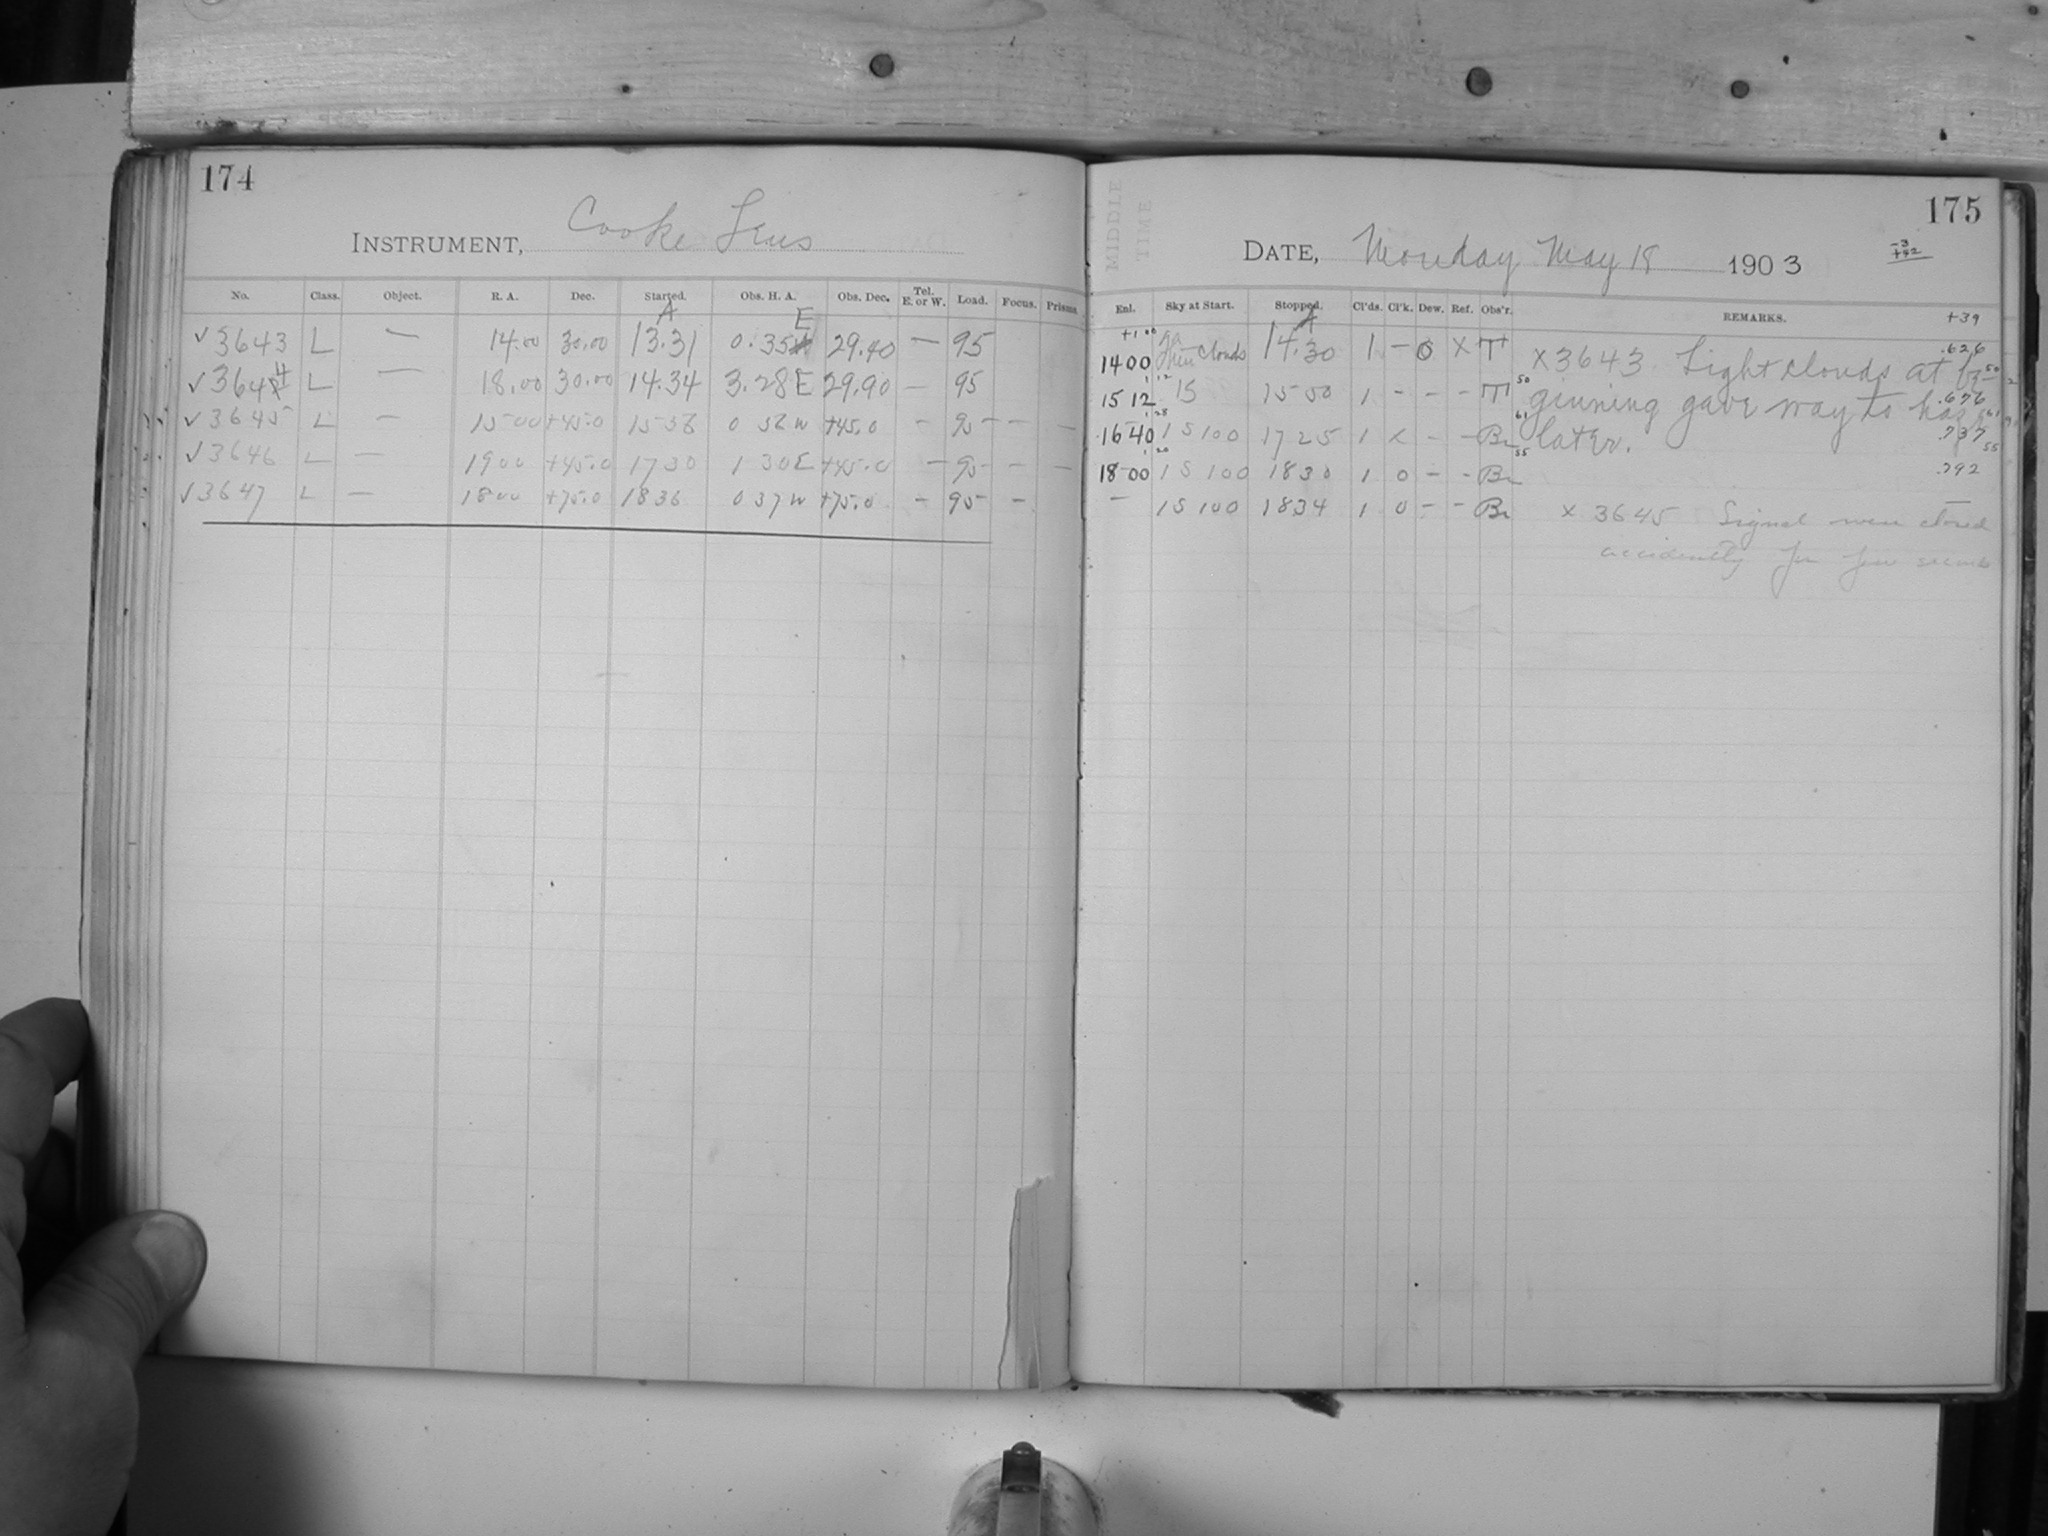 174
INSTRUMENT, Cooke Lens
No. Class. Object. R. A. Dec. Started. Obs. H. A. Obs. Dec. Tel. E. or W. Load. Focus. Prisms
A E
✓3643 L — 14.00 30.00 13.31 0.35 29.40 — 95
✓3644 L — 18.00 30.00 14.34 3.28E 29.90 — 95
✓3645 L — 15 00 +45.0 15 58 0 58 W +45.0 — 95 — —
✓3646 L — 19 00 +45.0 17 30 1 30E +45.0 — 95 — —
✓3647 L — 18 00 +75.0 18 36 0 37 W +75.0 — 95 —
MIDDLE TIME
175
DATE, Monday May 18 1903
-3
+42
Enl. Sky at Start. Stopped. Cl'ds. Cl'k. Dew. Ref. Obs'r. REMARKS.
+39
A
14 00 Thin Clouds 14.30 1 — 0 X
15 12 15 15 50 1 - - -
16 40 15 100 17 25 1 x - - Br
18 00 15 100 18 30 1 0 - - Br
— 15 100 18 34 1 0 - - Br
X 3643. Light clouds at be-
ginning gave way to haze
later.
.626
.676
.737
.792
x 3645 Signal were closed
accidently for few seconds